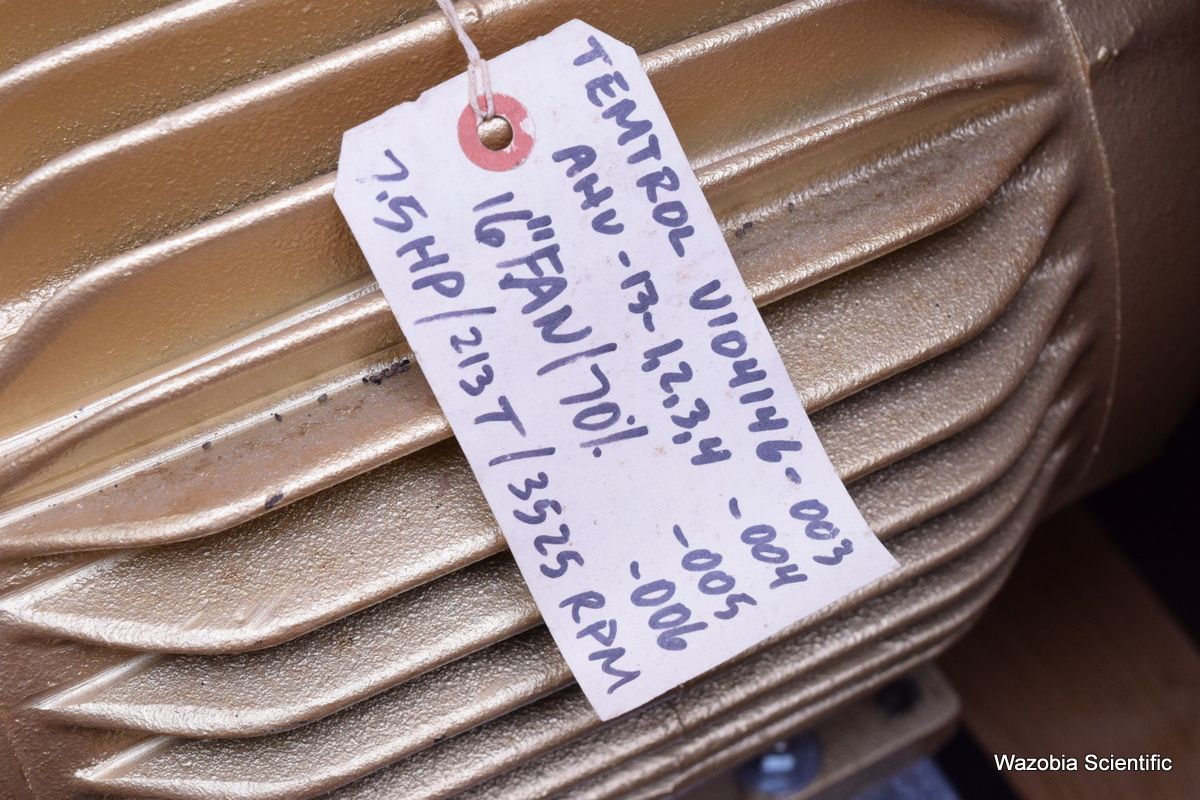 TEMTROL V104146-003
AHV-13-1,2,3,4 -004
-005
16" FAN/70% -006
7.5 HP/213T/3525 RPM
Wazobia Scientific